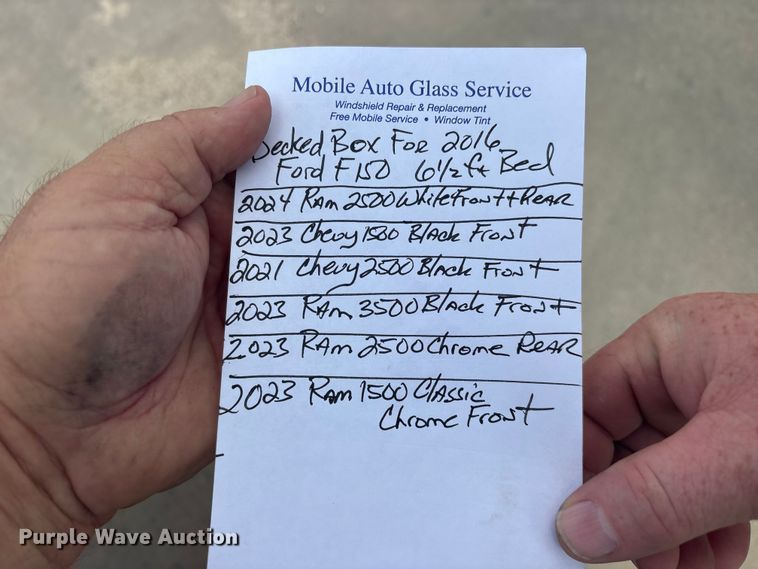 Mobile Auto Glass Service
Windshield Repair & Replacement
Free Mobile Service • Window Tint
Decked Box For 2016
Ford F150 6 1/2 ft Bed
2024 Ram 2500 White Front + Rear
2023 Chevy 1500 Black Front
2021 Chevy 2500 Black Front
2023 Ram 3500 Black Front
2023 Ram 2500 Chrome Rear
2023 Ram 1500 Classic
Chrome Front
Purple Wave Auction